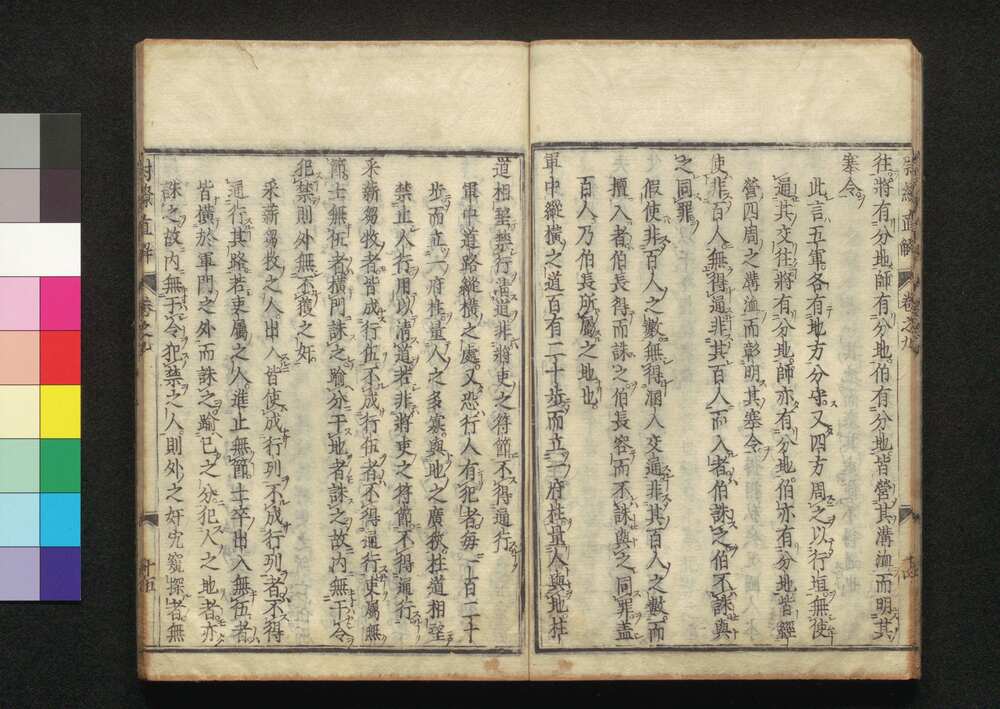 往將有分地師有分地伯有分地皆營其溝洫而明其
塞令
此言五軍各有地方分守又四方周之以行垣無使
通其交往將有分地師亦有分地伯亦有分地皆經
營四周之溝洫而彰明其塞令
使非百人無得通非其百人而入者伯誅之伯不誅與
之同罪
假使非百人之數無得溷人交通非其百人之數而
擅入者伯長得而誅之伯長容而不誅與之同罪蓋
百人乃伯長所屬之地也
軍中縱橫之道百有二十步而立一府柱量人與地柱
道相望禁行清道非將吏之符節不得通行
軍中道路縱橫之處又恐行人有犯者每一百二十
步而立一府柱量人之多寡與地之廣狹柱道相望
禁止人行用以清道若非將吏之符節不得通行
采薪芻牧者皆成行伍不成行伍者不得通行吏屬無
節士無伍者橫門誅之踰分干地者誅之故內無干令
犯禁則外無不獲之奸
采薪芻牧之人出入皆使成行列不成行列者不得
通行其路若吏屬之人進止無節士卒出入無伍者
皆橫於軍門之外而誅之踰己之分犯人之地者亦
誅之故內無干令犯禁之人則外之奸宄窺探者無
直解
卷之九